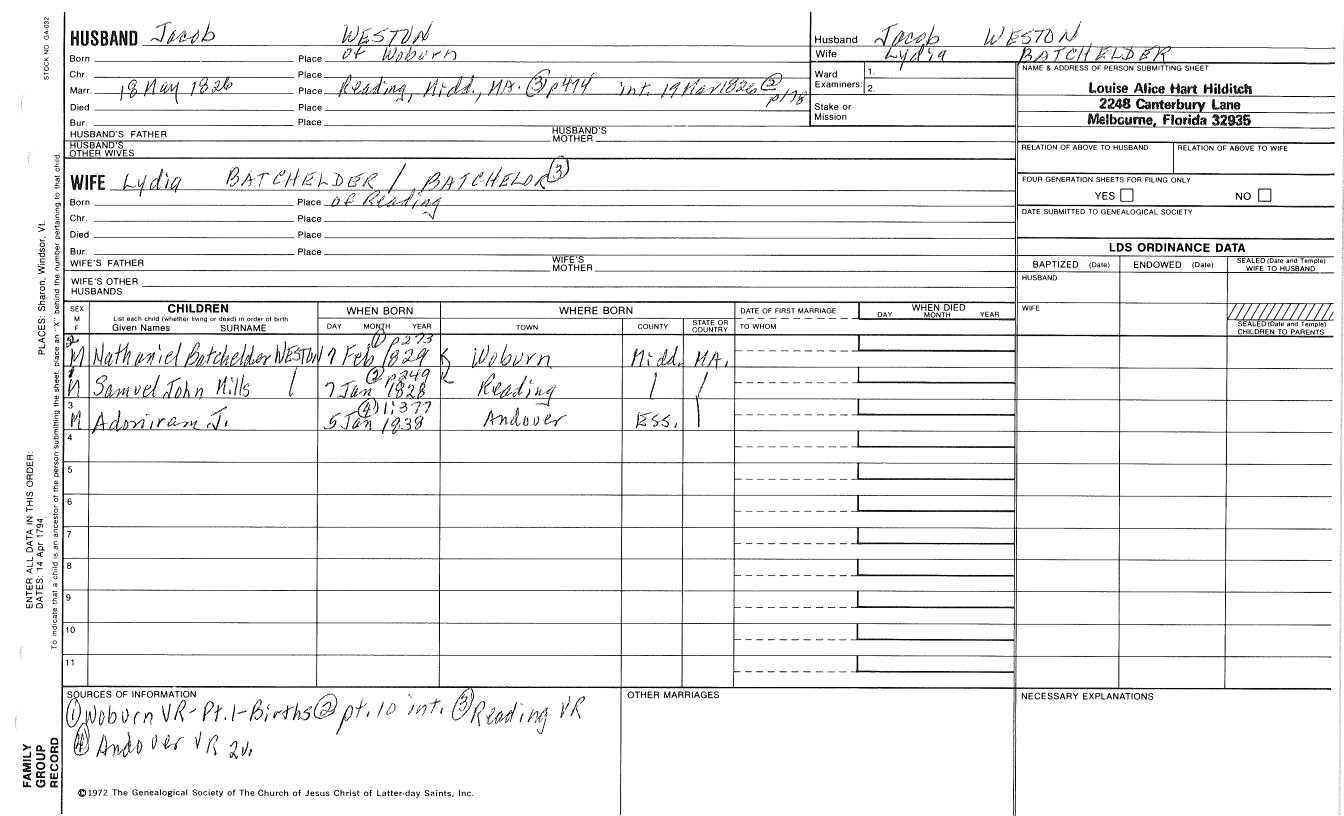 STOCK NO. GA-032
HUSBAND Jacob WESTON
Born Place of Woburn
Chr. Place
Marr. 18 May 1826 Place Reading, Midd., MA. (3) p474 int. 19 Mar 1826 (2) p178
Died Place
Bur. Place
HUSBAND'S FATHER HUSBAND'S MOTHER
HUSBAND'S OTHER WIVES
WIFE Lydia BATCHELDER / BATCHELOR (3)
Born Place of Reading
Chr. Place
Died Place
Bur. Place
WIFE'S FATHER WIFE'S MOTHER
WIFE'S OTHER HUSBANDS
Husband Jacob WESTON
Wife Lydia BATCHELDER
Ward Examiners: 1.
2.
Stake or Mission
NAME & ADDRESS OF PERSON SUBMITTING SHEET
Louise Alice Hart Hilditch
2248 Canterbury Lane
Melbourne, Florida 32935
RELATION OF ABOVE TO HUSBAND RELATION OF ABOVE TO WIFE
FOUR GENERATION SHEETS FOR FILING ONLY
YES NO
DATE SUBMITTED TO GENEALOGICAL SOCIETY
LDS ORDINANCE DATA
BAPTIZED (Date) ENDOWED (Date) SEALED (Date and Temple) WIFE TO HUSBAND
HUSBAND
WIFE
SEALED (Date and Temple) CHILDREN TO PARENTS
SEX M F
CHILDREN
List each child (whether living or dead) in order of birth
Given Names SURNAME
WHEN BORN
DAY MONTH YEAR
WHERE BORN
TOWN COUNTY STATE OR COUNTRY
DATE OF FIRST MARRIAGE
TO WHOM
WHEN DIED
DAY MONTH YEAR
(1) p273
2 M Nathaniel Batchelder WESTON 7 Feb 1829 Woburn Midd. MA.
(2) p249
1 M Samuel John Mills 7 Jan 1828 Reading
(4) 1:377
3 M Adoniram J. 5 Jan 1838 Andover Ess.
4
5
6
7
8
9
10
11
SOURCES OF INFORMATION
(1) Woburn VR-Pt.1-Births (2) pt.10 int. (3) Reading VR
(4) Andover VR 2v.
OTHER MARRIAGES
NECESSARY EXPLANATIONS
©1972 The Genealogical Society of The Church of Jesus Christ of Latter-day Saints, Inc.
FAMILY GROUP RECORD
ENTER ALL DATA IN THIS ORDER:
DATES: 14 Apr 1794
PLACES: Sharon, Windsor, Vt.
To indicate that a child is an ancestor of the person submitting the sheet, place an "X" behind the number pertaining to that child.